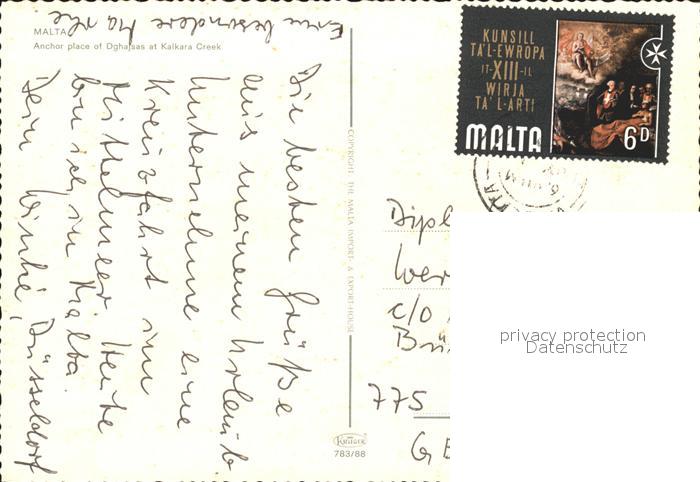 MALTA
Anchor place of Dghajsas at Kalkara Creek
Eine besondere Marke
Die besten Grüße
aus meinem Urlaub
Unternehme eine
Kreuzfahrt im
Mittelmeer. Heute
bin ich in Malta.
Dein Düsseldorf
COPYRIGHT: THE MALTA IMPORT- & EXPORT-HOUSE
KRÜGER
783/88
KUNSILL
TA'L-EWROPA
IT-XIII-IL
WIRJA
TA' L-ARTI
MALTA 6D
Dipl
Wer
c/o
Brü
775
GE
privacy protection
Datenschutz